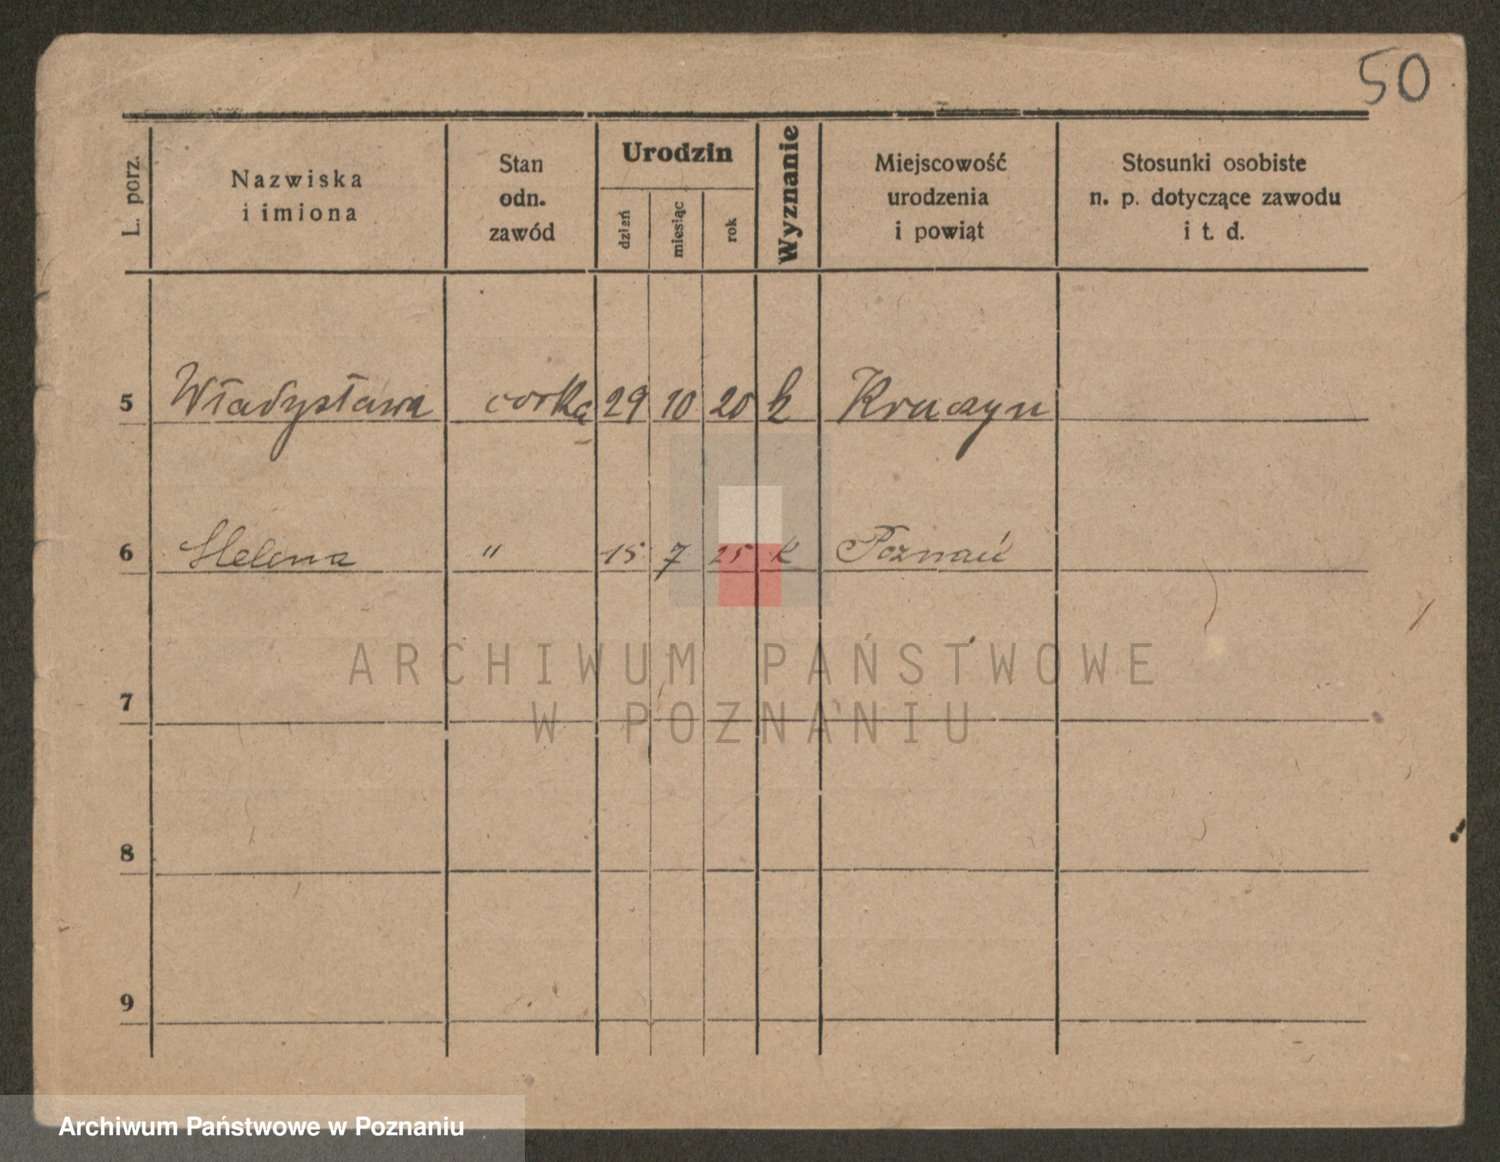 50
L. porz.
Nazwiska
i imiona
Stan
odn.
zawód
Urodzin
dzień
miesiąc
rok
Wyznanie
Miejscowość
urodzenia
i powiąt
Stosunki osobiste
n. p. dotyczące zawodu
i t. d.
5 Władysława corka 29 10 20 k Kruczyn
6 Helena " 15 7 25 K Poznań
7
8
9
ARCHIWUM PAŃSTWOWE
W POZNANIU
Archiwum Państwowe w Poznaniu